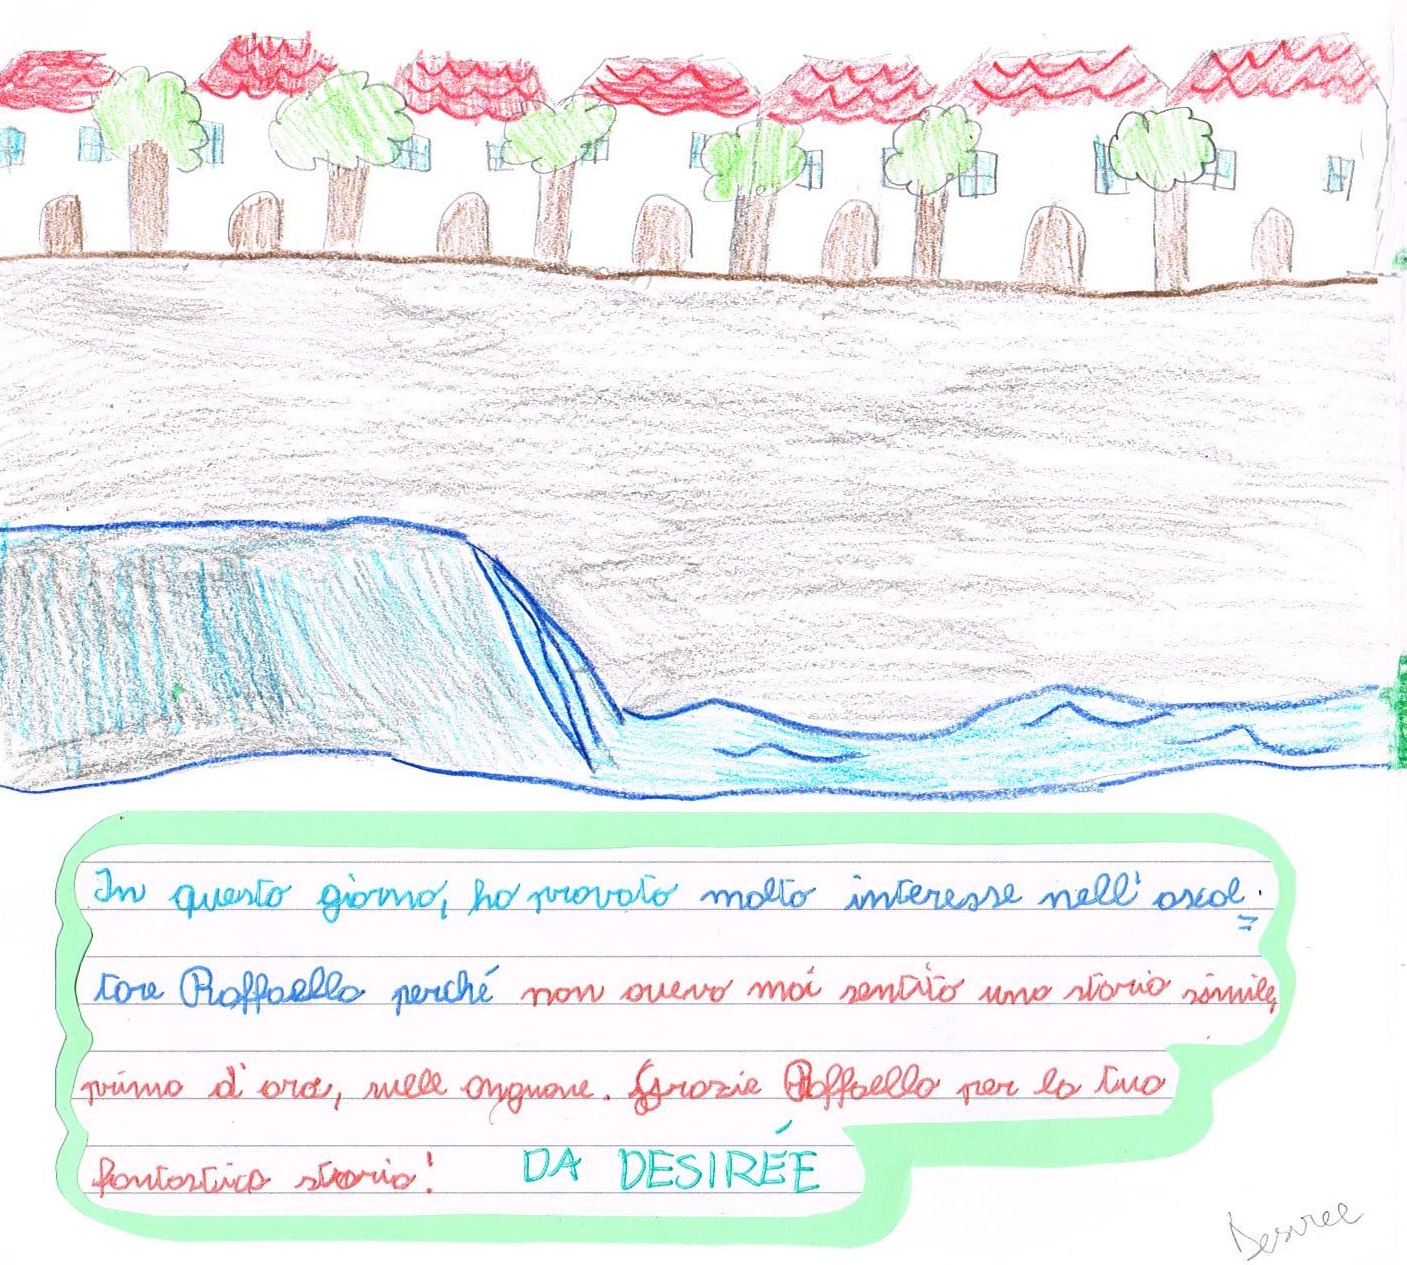 In questo giorno, ho provato molto interesse nell'ascol=
tare Raffaella perché non avevo mai sentito una storia simile,
prima d'ora, sulle anguane. Grazie Raffaella per la tua
fantastica storia! DA DESIRÉE
Desiree